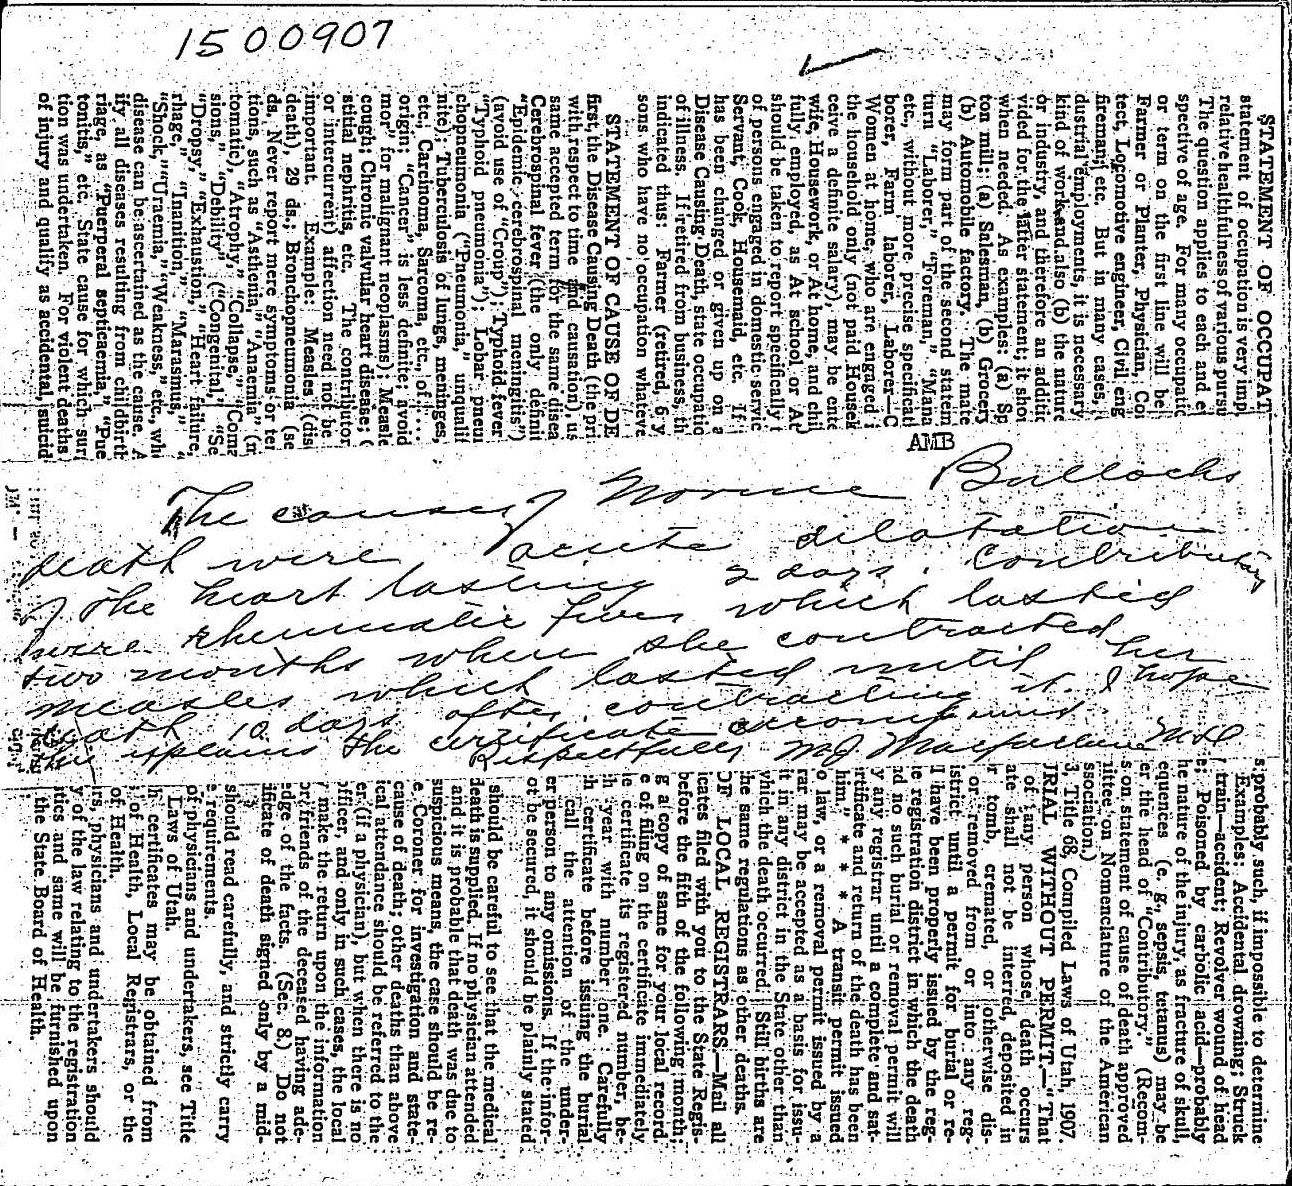 1500907
STATEMENT OF OCCUPAT
statement of occupation is very imp
relative healthfulness of various pursu
The question applies to each and e
spective of age. For many occupatio
or term on the first line will be
Farmer or Planter, Physician, Co
tect, Locomotive engineer, Civil eng
fireman, etc. But in many cases,
dustrial employments, it is necessary
kind of work and also (b) the nature
or industry, and therefore an additio
vided for the latter statement; it shou
when needed. As examples: (a) Sp
ton mill; (a) Salesman, (b) Grocery
(b) Automobile factory. The mate
may form part of the second statem
turn "Laborer," "Foreman," "Mana
etc., without more precise specificati
borer, Farm laborer, Laborer—C
Women at home, who are engaged i
the household only (not paid Housek
ceive a definite salary), may be ente
wife, Housework, or At home, and chil
fully employed, as At school or At
should be taken to report specifically t
of persons engaged in domestic servic
Servant, Cook, Housemaid, etc. If
has been changed or given up on a
Disease Causing Death, state occupatio
of illness. If retired from business, th
indicated thus: Farmer (retired, 6 y
sons who have no occupation whateve
STATEMENT OF CAUSE OF DE
first, the Disease Causing Death (the pri
with respect to time and causation), us
same accepted term for the same disea
Cerebrospinal fever (the only definit
"Epidemic cerebrospinal meningitis")
(avoid use of "Croup"); Typhoid fever
"Typhoid pneumonia"); Lobar pneu
chopneumonia ("Pneumonia," unqualif
nite); Tuberculosis of lungs, meninges,
etc., Carcinoma, Sarcoma, etc., of ....
origin; "Cancer" is less definite; avoid
mor" for malignant neoplasms); Measle
cough; Chronic valvular heart disease;
stitial nephritis, etc. The contributor
or intercurrent) affection need not be
important. Example: Measles (dis
death), 29 ds.; Bronchopneumonia (se
ds. Never report mere symptoms or ter
tions, such as "Asthenia," "Anaemia" (m
tomatic), "Atrophy," "Collapse," "Coma
sions," "Debility" ("Congenital," "Se
"Dropsy," "Exhaustion," "Heart failure,
rhage," "Inanition," "Marasmus,"
"Shock," "Uraemia," "Weakness," etc., wh
disease can be ascertained as the cause. A
ify all diseases resulting from childbirth
riage, as "Puerperal septicaemia," "Pue
tonitis," etc. State cause for which surg
tion was undertaken. For violent deaths
of injury and qualify as accidental, suicid
AMB
The causes of Norine Bullochs
death were acute dilatation
of the heart lasting 2 days. Contributory
were rheumatic fever which lasted
two months when she contracted
measles which lasted until her
death 10 days after contracting it. I hope
this explains the certificate
Respectfully M.J. Macfarlane M.D
s probably such, if impossible to determine
Examples: Accidental drowning; Struck
train—accident; Revolver wound of head
e; Poisoned by carbolic acid—probably
he nature of the injury, as fracture of skull,
equences (e. g., sepsis, tetanus) may be
er the head of "Contributory." (Recom-
s on statement of cause of death approved
mittee on Nomenclature of the American
ssociation.)
3, Title 68, Compiled Laws of Utah, 1907.
URIAL WITHOUT PERMIT.—"That
of any person whose death occurs
ate shall not be interred, deposited in
r tomb, cremated, or otherwise dis-
or removed from or into any reg-
istrict until a permit for burial or re-
l have been properly issued by the reg-
e registration district in which the death
nd no such burial or removal permit will
y any registrar until a complete and sat-
ertificate and return of the death has been
him." * * * A transit permit issued
o law, or a removal permit issued by a
rar may be accepted as a basis for issu-
it in any district in the State other than
which the death occurred. Still births are
he same regulations as other deaths.
OF LOCAL REGISTRARS—Mail all
icates filed with you to the State Regis-
before the fifth of the following month;
g a copy of same for your local record.
e of filing on the certificate immediately
le certificate its registered number, be-
h year with number one. Carefully
h certificate before issuing the burial
call the attention of the under-
er person to any omissions. If the infor-
ot be secured, it should be plainly stated
should be careful to see that the medical
death is supplied. If no physician attended
and it is probable that death was due to
suspicious means, the case should be re-
e Coroner for investigation and state-
cause of death; other deaths than above
ical attendance should be referred to the
officer, and only in such cases, the local
r (if a physician), but when there is no
y make the return upon the information
or friends of the deceased having ade-
edge of the facts. (Sec. 8.) Do not
ificate of death signed only by a mid-
should read carefully, and strictly carry
e requirements.
of physicians and undertakers, see Title
Laws of Utah.
h certificates may be obtained from
of Health, Local Registrars, or the
of Health.
rs, physicians and undertakers should
y of the law relating to the registration
ties and same will be furnished upon
the State Board of Health.